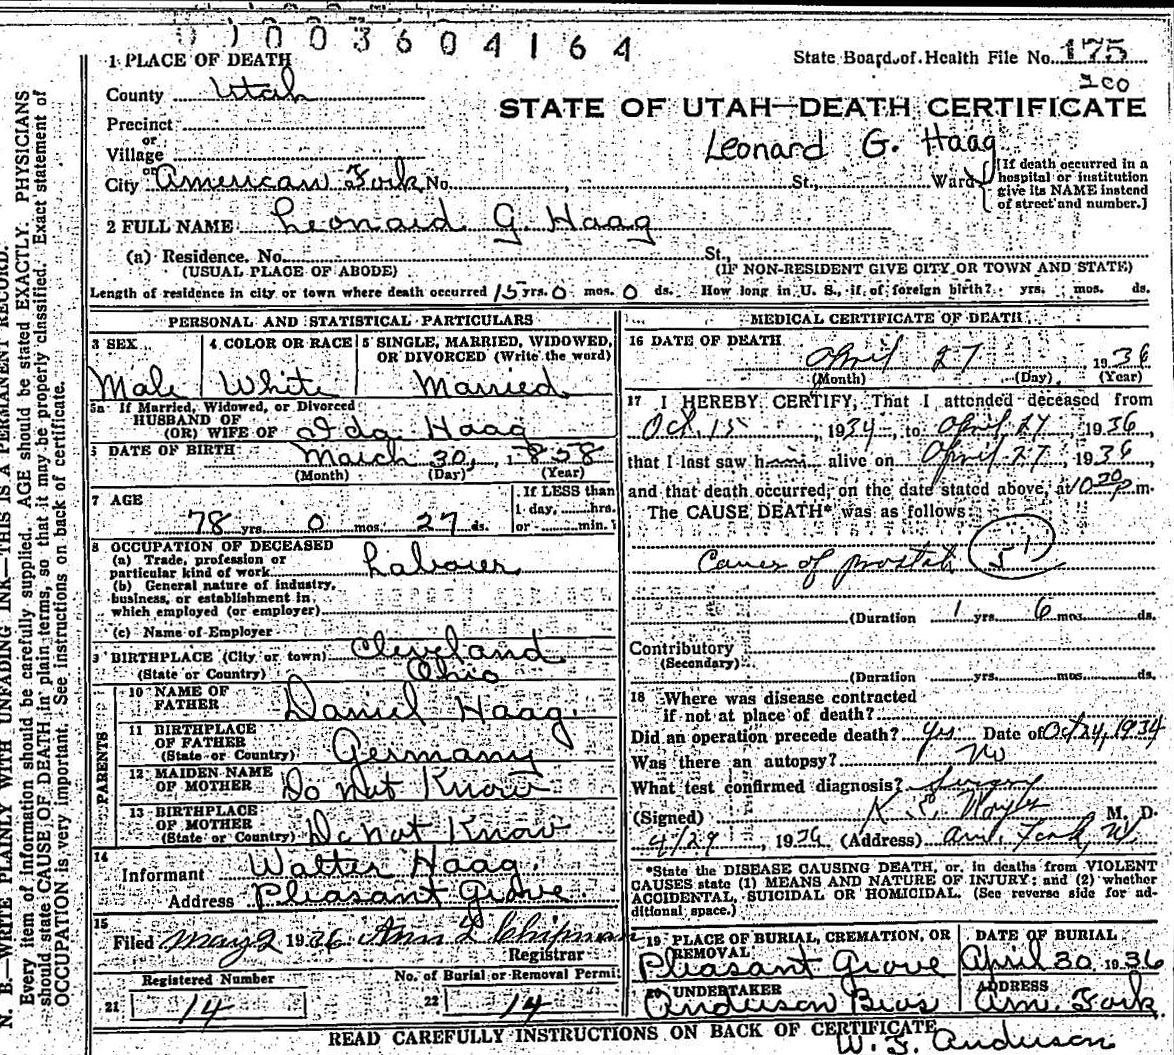 01003604164
1 PLACE OF DEATH
State Board of Health File No. 175
200
County Utah
STATE OF UTAH—DEATH CERTIFICATE
Precinct
or
Village
Leonard G. Haag
or
City American Fork No. St., Ward
[If death occurred in a hospital or institution give its NAME instead of street and number.]
2 FULL NAME Leonard G. Haag
(a) Residence. No. St.,
(USUAL PLACE OF ABODE) (IF NON-RESIDENT GIVE CITY OR TOWN AND STATE)
Length of residence in city or town where death occurred 15 yrs. 0 mos. 0 ds. How long in U. S., if of foreign birth? yrs. mos. ds.
PERSONAL AND STATISTICAL PARTICULARS
3 SEX 4 COLOR OR RACE 5 SINGLE, MARRIED, WIDOWED, OR DIVORCED (Write the word)
Male White Married
5a If Married, Widowed, or Divorced
HUSBAND OF
(OR) WIFE OF Ida Haag
6 DATE OF BIRTH March 30, 1858
(Month) (Day) (Year)
7 AGE
78 yrs. 0 mos. 27 ds.
If LESS than
1 day, hrs.
or min.
8 OCCUPATION OF DECEASED
(a) Trade, profession or
particular kind of work Labourer
(b) General nature of industry,
business, or establishment in
which employed (or employer)
(c) Name of Employer
9 BIRTHPLACE (City or town) Cleveland
(State or Country) Ohio
PARENTS
10 NAME OF
FATHER Daniel Haag.
11 BIRTHPLACE
OF FATHER
(State or Country) Germany
12 MAIDEN NAME
OF MOTHER Do Not Know
13 BIRTHPLACE
OF MOTHER
(State or Country) Do not Know
14
Informant Walter Haag.
Address Pleasant Grove
15
Filed May 2 1936 Ann L Chipman
Registrar
Registered Number No. of Burial or Removal Permit
21 14 22 14
MEDICAL CERTIFICATE OF DEATH
16 DATE OF DEATH
April 27 1936
(Month) (Day) (Year)
17 I HEREBY CERTIFY, That I attended deceased from
Oct. 15, 1934, to April 27, 1936,
that I last saw him alive on April 27, 1936
and that death occurred, on the date stated above, at 10 20 p m.
The CAUSE DEATH* was as follows:
Cancer of prostate 51
(Duration 1 yrs. 6 mos. ds.
Contributory
(Secondary)
(Duration yrs. mos. ds.
18 Where was disease contracted
if not at place of death?
Did an operation precede death? yes Date of Oct 24, 1934
Was there an autopsy? No
What test confirmed diagnosis? Surgery
(Signed) K. E. Noyes M. D.
4/29, 1936 (Address) Am. Fork, U.
*State the DISEASE CAUSING DEATH, or, in deaths from VIOLENT
CAUSES state (1) MEANS AND NATURE OF INJURY; and (2) whether
ACCIDENTAL, SUICIDAL OR HOMICIDAL. (See reverse side for ad-
ditional space.)
19 PLACE OF BURIAL, CREMATION, OR REMOVAL DATE OF BURIAL
Pleasant Grove April 30, 1936
20 UNDERTAKER ADDRESS
Anderson Bros Am. Fork
READ CAREFULLY INSTRUCTIONS ON BACK OF CERTIFICATE
W. F. Anderson
N. B.—WRITE PLAINLY WITH UNFADING INK—THIS IS A PERMANENT RECORD.
Every item of information should be carefully supplied. AGE should be stated EXACTLY. PHYSICIANS
should state CAUSE OF DEATH in plain terms, so that it may be properly classified. Exact statement of
OCCUPATION is very important. See instructions on back of certificate.